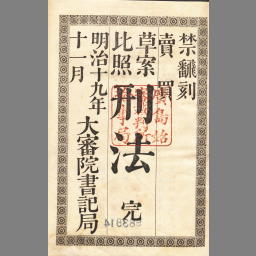 禁飜刻
賣買
草案
比照
刑法
完
明治十九年
十一月
大審院書記局